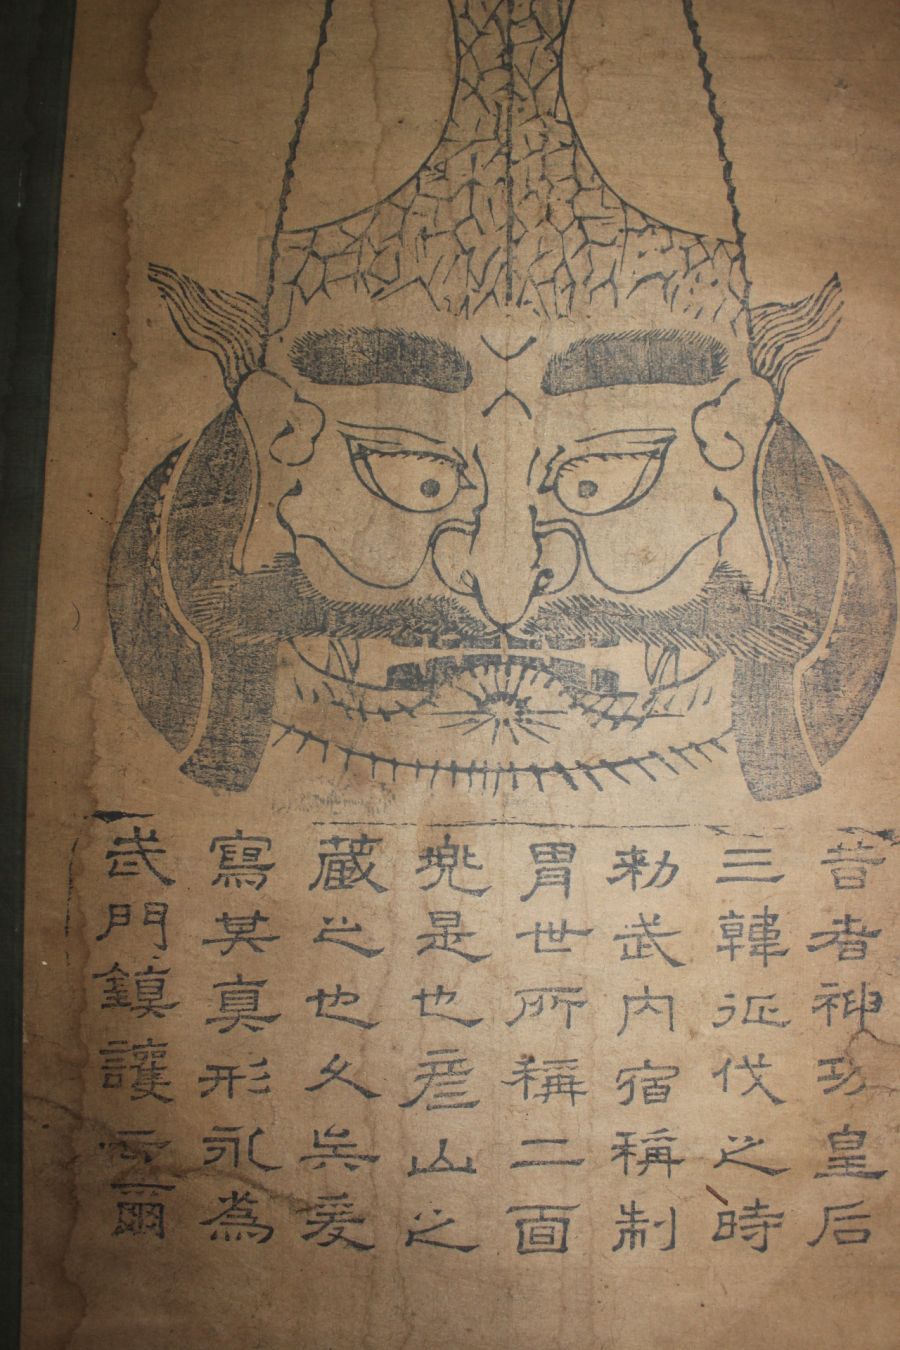 昔者神功皇后
三韓征伐之時
勅武内宿稱制
冑世所稱二面
兠是也彦山之
蔵之也久矣爰
寫其真形永為
武門鎮護云爾